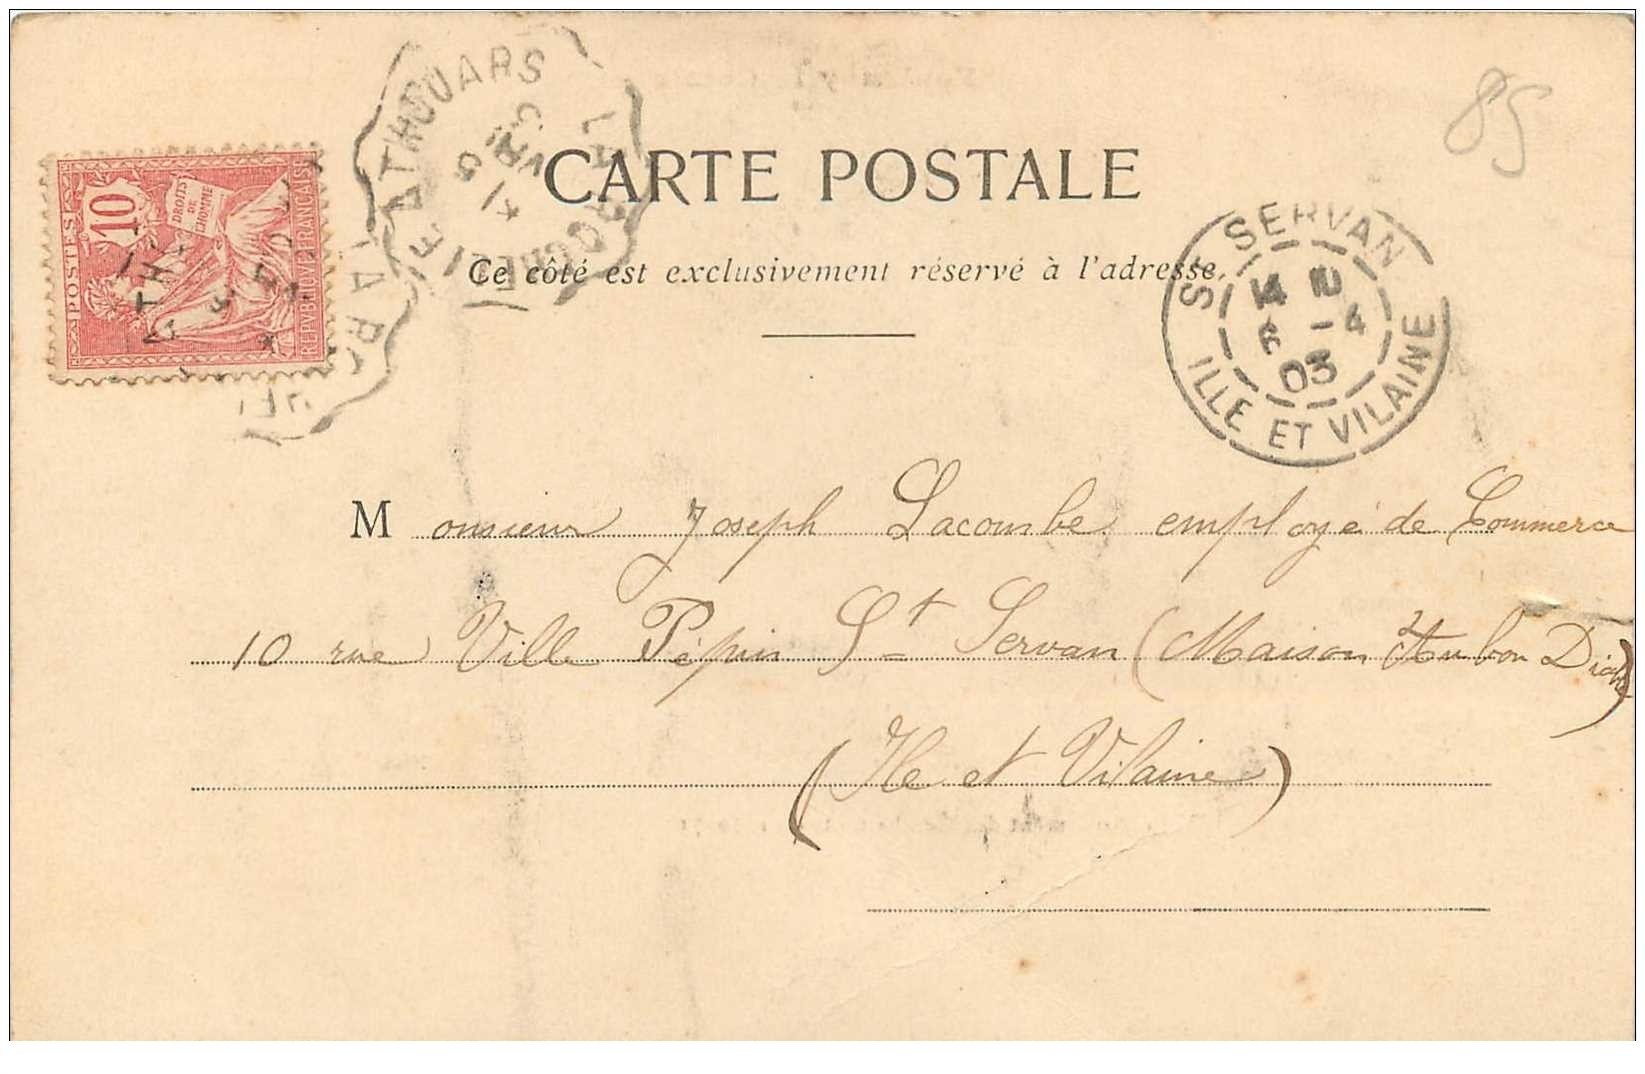 85
CARTE POSTALE
Ce côté est exclusivement réservé à l'adresse.
POSTES 10 DROITS DE L'HOMME REPVBLIQVE FRANÇAISE
LA ROCHE A THOUARS
ST SERVAN
6 -4
03
ILLE ET VILAINE
Monsieur Joseph Lacombe employé de Commerce
10 rue Ville Pépin St Servan (Maison Au bon Diable)
(Ile et Vilaine)